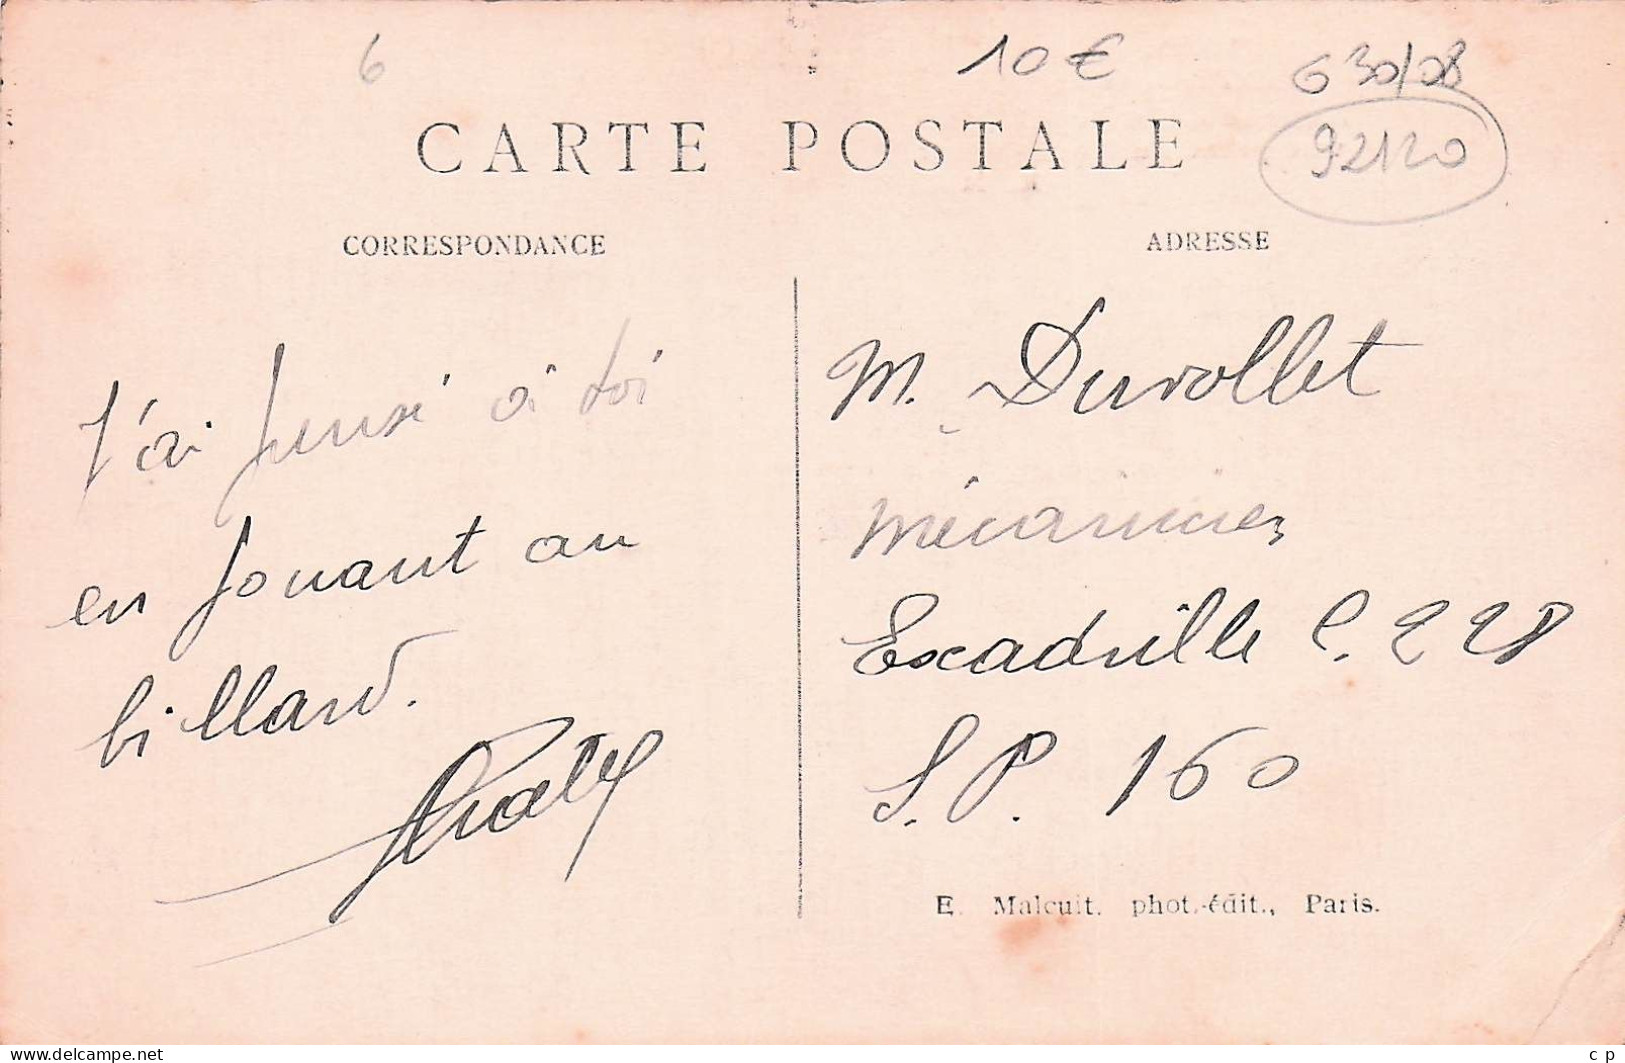 6
10 €
G30/08
CARTE POSTALE
92120
CORRESPONDANCE
ADRESSE
J'ai pensé à toi
en jouant au
billard.
M. Duvollet
Mécanicien
Escadrille C. 228
S. P. 160
E. Malcuit. phot.-édit., Paris.
www.delcampe.net
c p